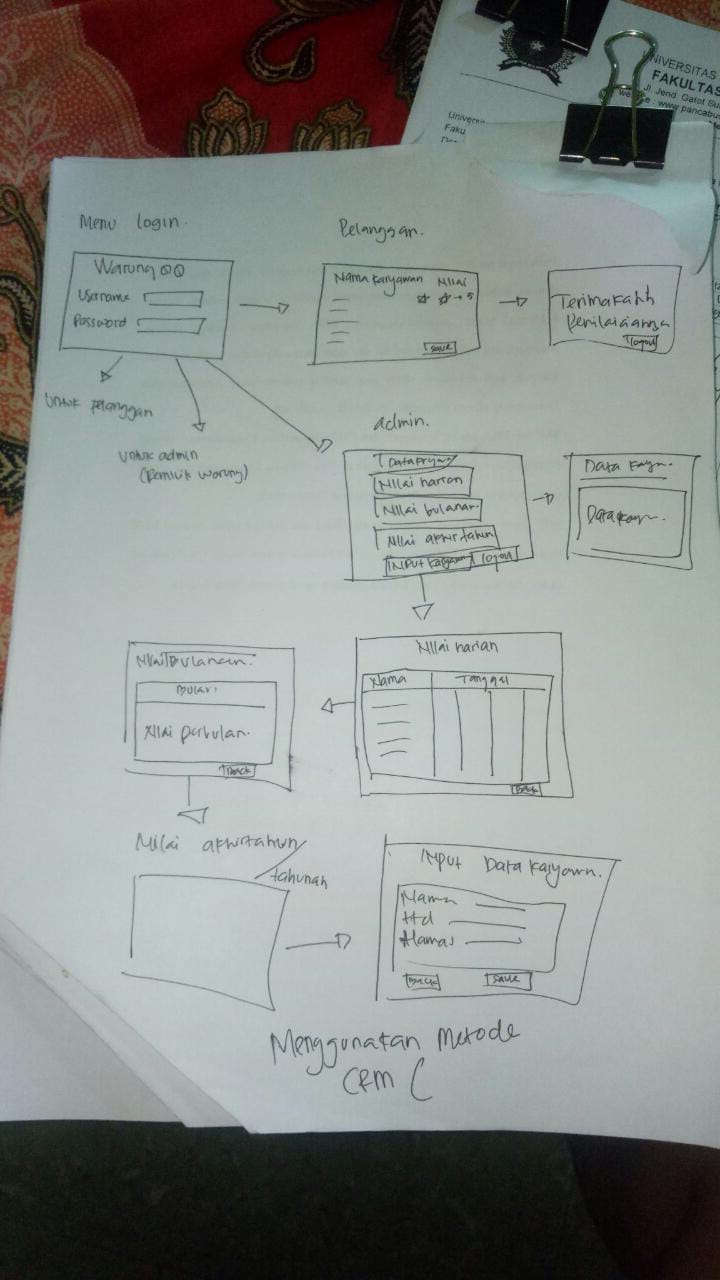 UNIVERSITAS
FAKULTAS
Jl. Jend. Gatot Su
www.pancabu
Univers
Faku
Menu login.
Warung QQ
Username
Password
untuk pelanggan
untuk admin
(Pemilik warung)
Pelanggan.
Nama karyawan Nilai
5
save
Terimakasih
Penilaiannya
logout
admin.
Nilai harian
Nilai bulanan
Nilai akhir tahun
INPUT karyawan logout
Data
Data
Nilai harian
Nama Tanggal
Back
Nilai Bulanan.
Bulan
Nilai perbulan.
Back
Nilai akhir tahun/
tahunan
INPUT Data karyawan.
Nama
Ttl
Alamat
Back save
Menggunakan Metode
CRM (